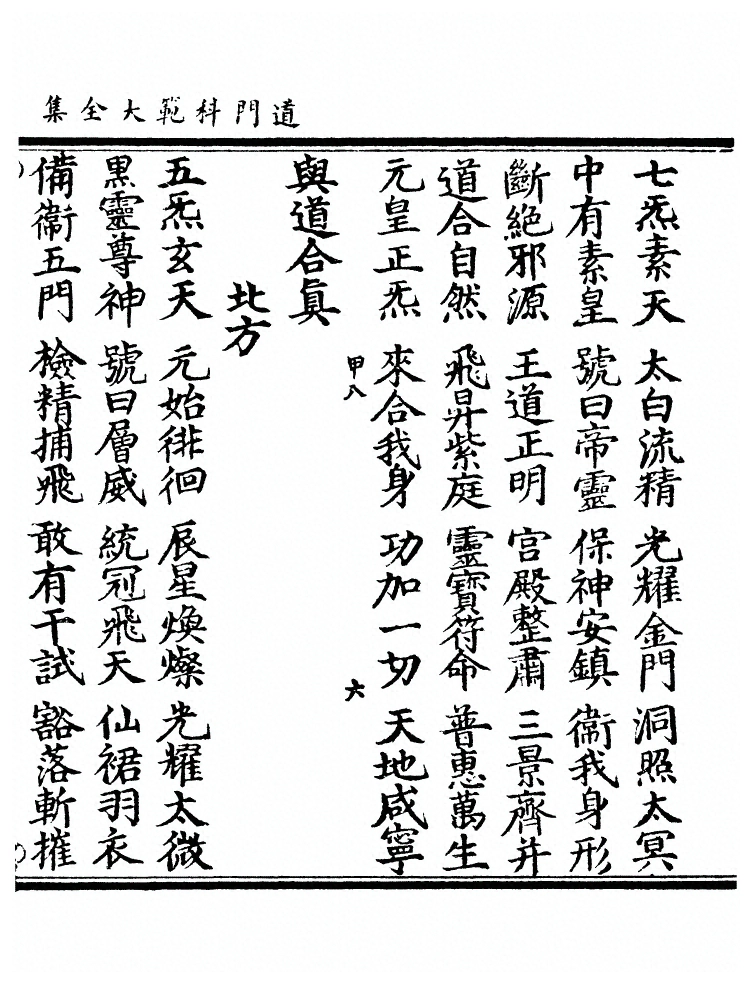 道門科範大全集
七炁素天　太白流精　光耀金門　洞照太冥
中有素皇　號曰帝靈　保神安鎮　衞我身形
斷絕邪源　王道正明　宮殿整肅　三景齊并
道合自然　飛昇紫庭　靈寶符命　普惠萬生
元皇正炁　來合我身　功加一切　天地咸寧
甲八　六
與道合眞
北方
五炁玄天　元始徘徊　辰星煥燦　光耀太微
黑靈尊神　號曰層威　統冠飛天　仙裙羽衣
備衞五門　檢精捕飛　敢有干試　豁落斬摧